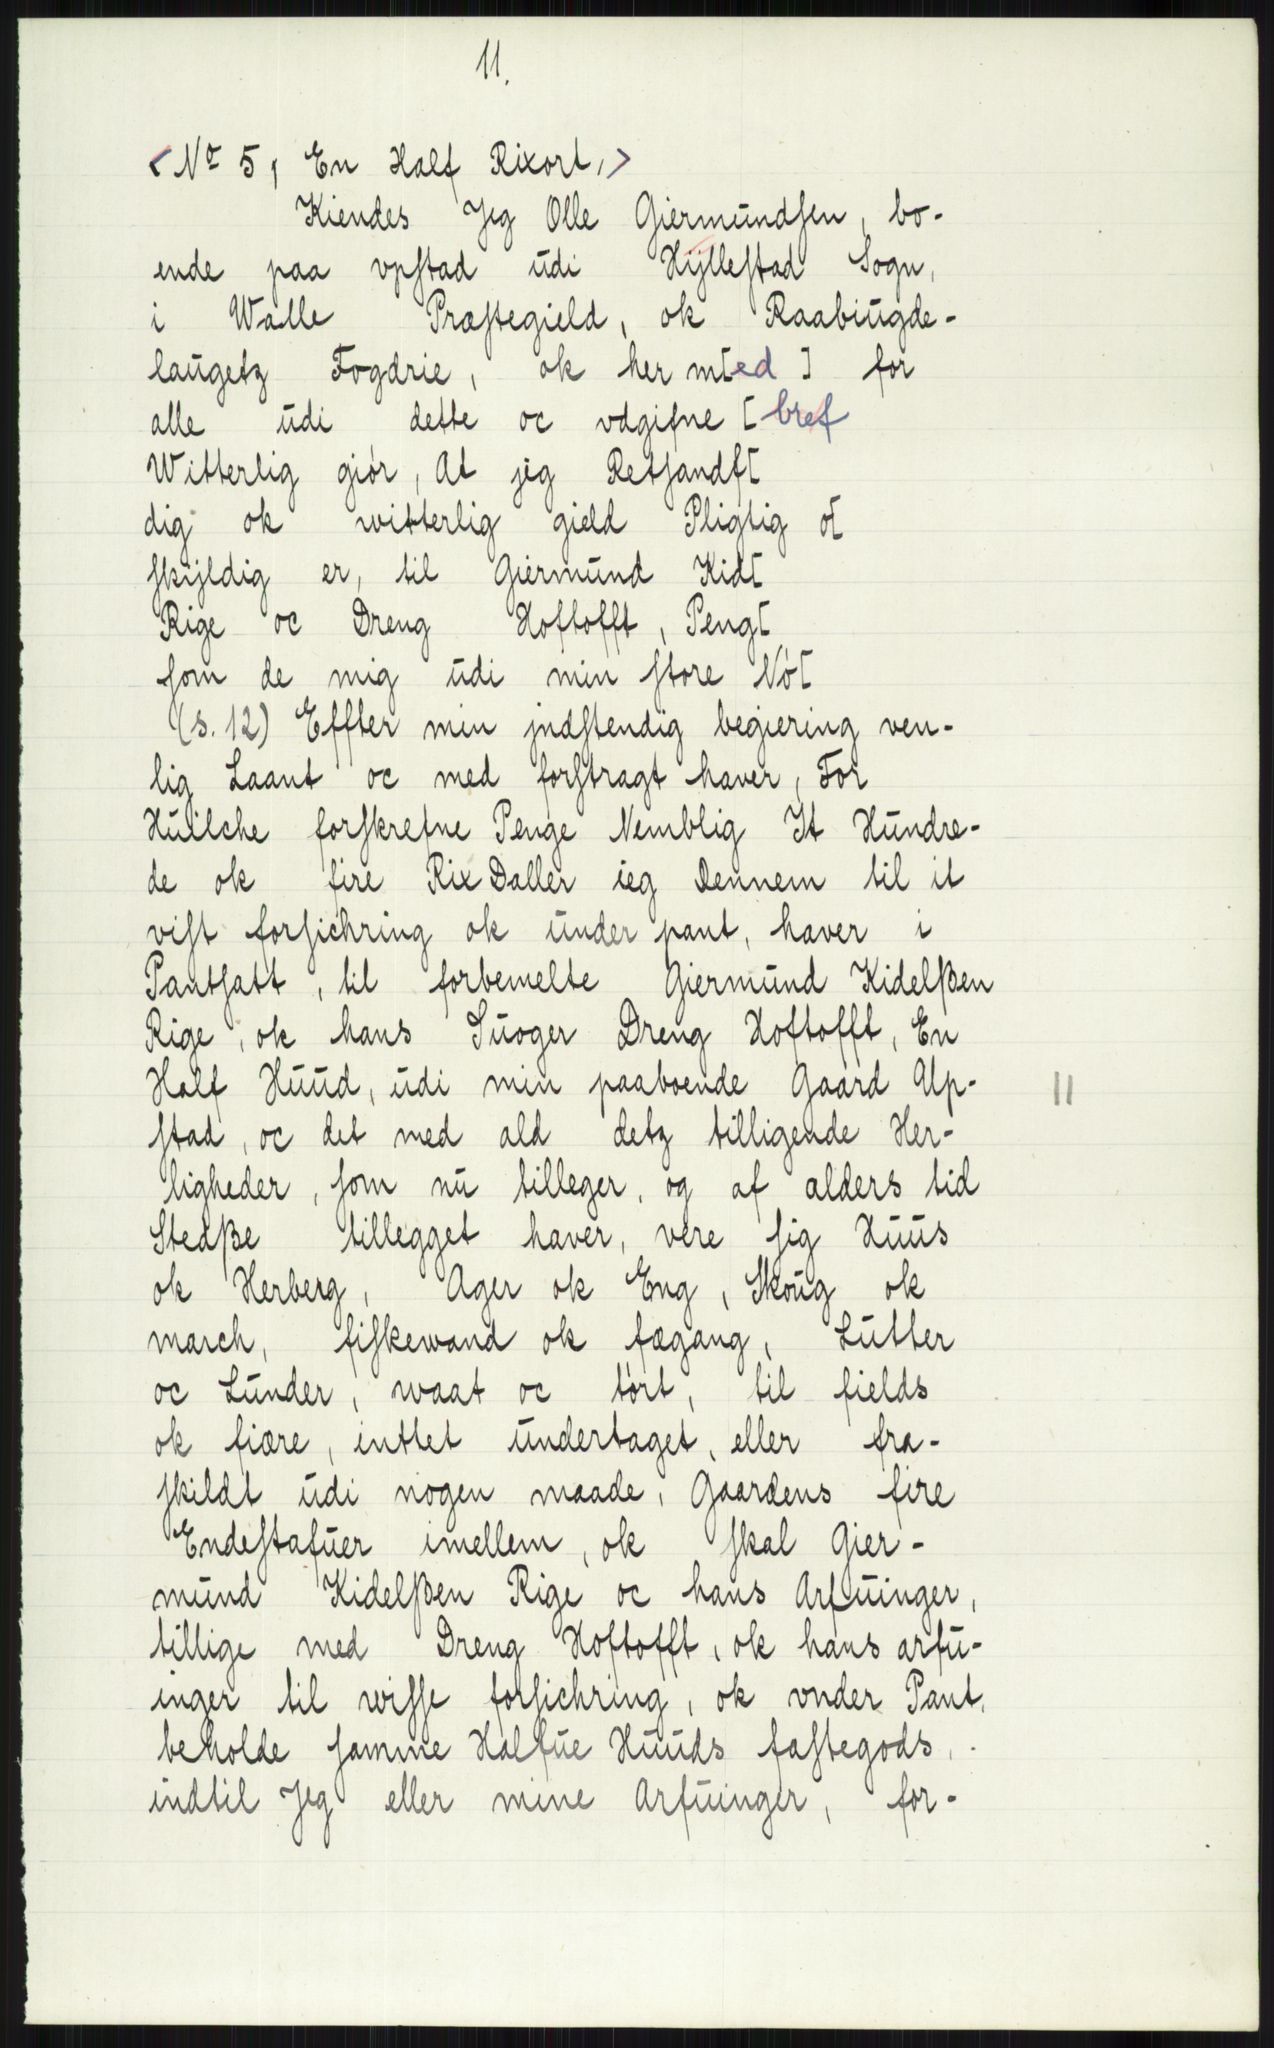 11.
<No 5, En Half Rixort,>
Kiendes Jeg Olle Giermundsen, bo-
ende paa vpstad udi Hÿllestad Sogn,
i Walle Præstegield, ok Raabiugde-
laugetz Fogdrie, ok her m[ed ] for
alle udi dette oc vdgifne [bref
Witterlig giör, At jeg Retsandf[
dig ok witterlig gield Pligtig o[
skÿldig er, til Giermund Kid[
Rige oc Dreng Hoftofft, Peng[
som de mig udi min store Nö[
(s. 12) Effter min jndstendig begiering ven-
lig Laant oc med forstragt haver, For
Huilche forskrefne Penge Nemblig It Hundre-
de ok fire Rix Daller ieg Dennem til it
vist forsichring ok under pant, haver i
Pantsatt, til forbemelte Giermund Kidelßen
Rige, ok hans Suoger Dreng Hoftofft, En
Half Huud, udi min paaboende Gaard Up-
stad, oc det med ald detz tilligende Her-
ligheder, som nu tilleger, og af alders tid
Stedße tillegget haver, vere sig Huus
ok Herberg, Ager ok Eng, Skoug ok
march, fiskewand ok fægang, Lutter
oc Lunder, waat oc tört, til fields
ok fiære, inttet undertaget, eller fra-
skildt udi nogen maade, Gaardens fire
Endestafuer imellem, ok skal Gier-
mund Kidelßen Rige oc hans Arfuinger,
tillige med Dreng Hoftofft, ok hans arfu-
inger til wisse forsichring, ok vnder Pant,
beholde samme Halfue Huuds fastegods,
indtil Jeg eller mine Arfuinger, for-
11